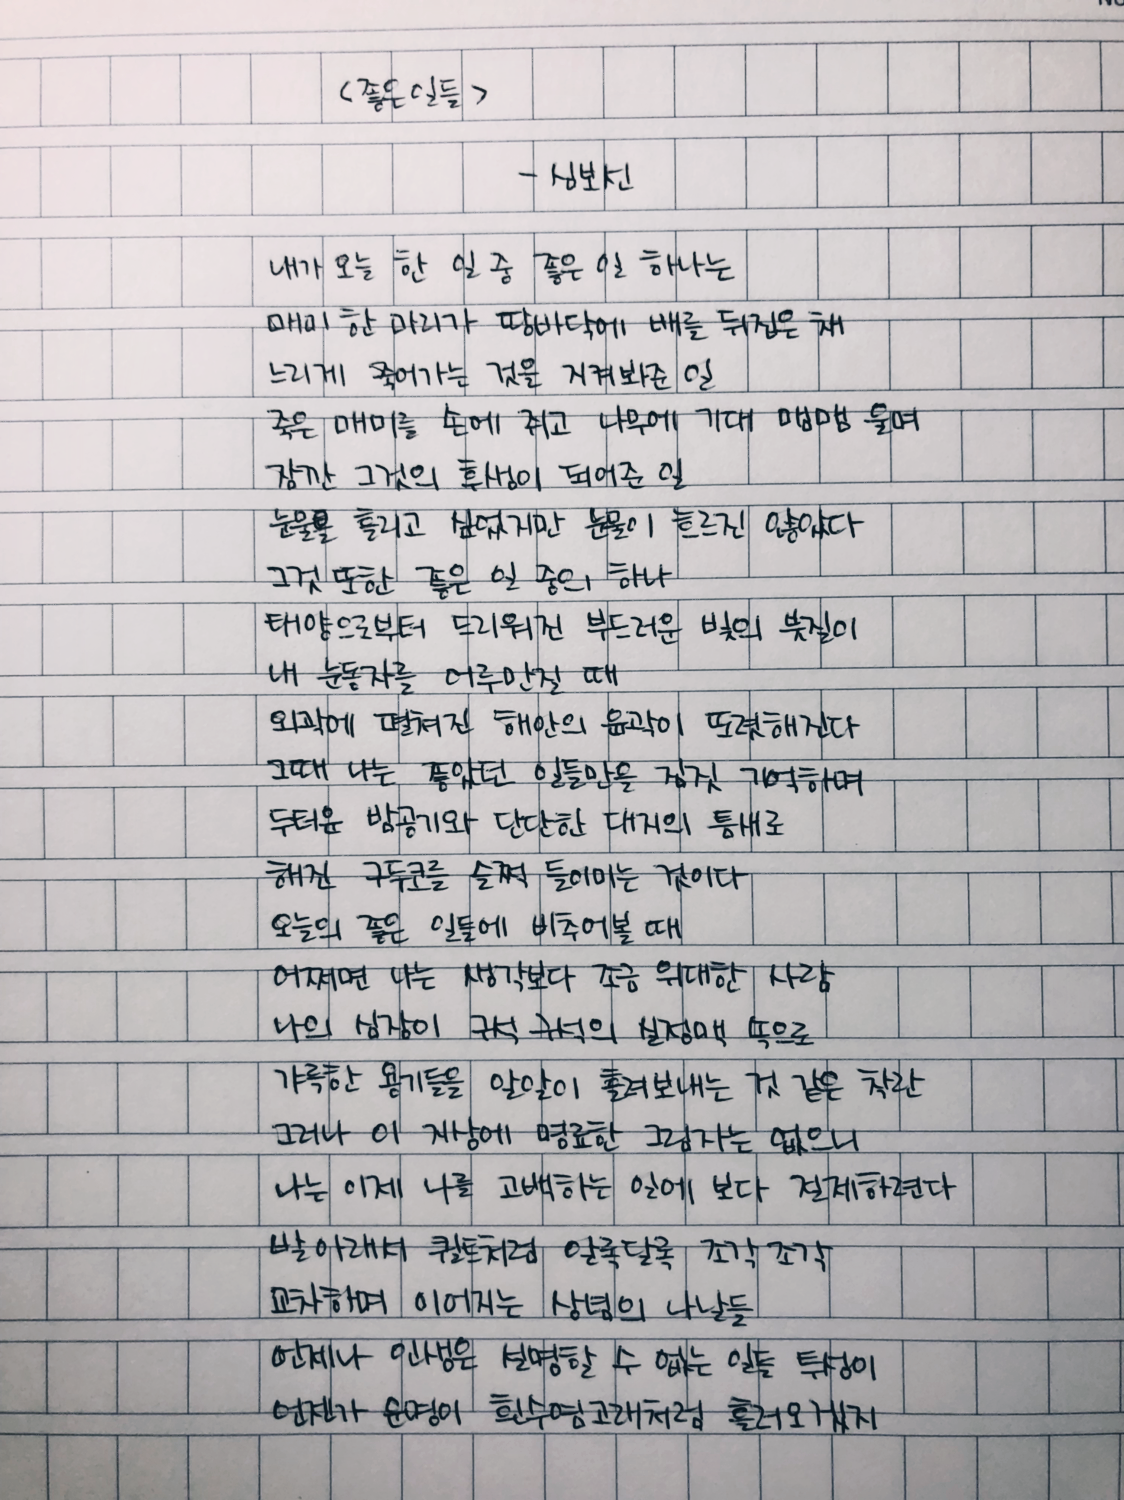 <좋은 일들>
- 심보선
내가 오늘 한 일 중 좋은 일 하나는
매미 한 마리가 땅바닥에 배를 뒤집은 채
느리게 죽어가는 것을 지켜봐준 일
죽은 매미를 손에 쥐고 나무에 기대 맴맴 울며
잠깐 그것의 후생이 되어준 일
눈물을 흘리고 싶었지만 눈물이 흐르진 않았다
그것 또한 좋은 일 중의 하나
태양으로부터 드리워진 부드러운 빛의 붓질이
내 눈동자를 어루만질 때
외곽에 펼쳐진 해안의 윤곽이 또렷해진다
그때 나는 좋았던 일들만을 짐짓 기억하며
두터운 밤공기와 단단한 대지의 틈새로
해진 구두코를 슬쩍 들이미는 것이다
오늘의 좋은 일들에 비추어볼 때
어쩌면 나는 생각보다 조금 위대한 사람
나의 심장이 구석 구석의 실정맥 쪽으로
갸륵한 용기들을 알알이 흘려보내는 것 같은 착란
그러나 이 지상에 명료한 그림자는 없으니
나는 이제 나를 고백하는 일에 보다 절제하련다
발 아래서 퀼트처럼 알록달록 조각 조각
교차하며 이어지는 상념의 나날들
언제나 인생은 설명할 수 없는 일들 투성이
언젠가 운명이 흰수염고래처럼 흘러오겠지